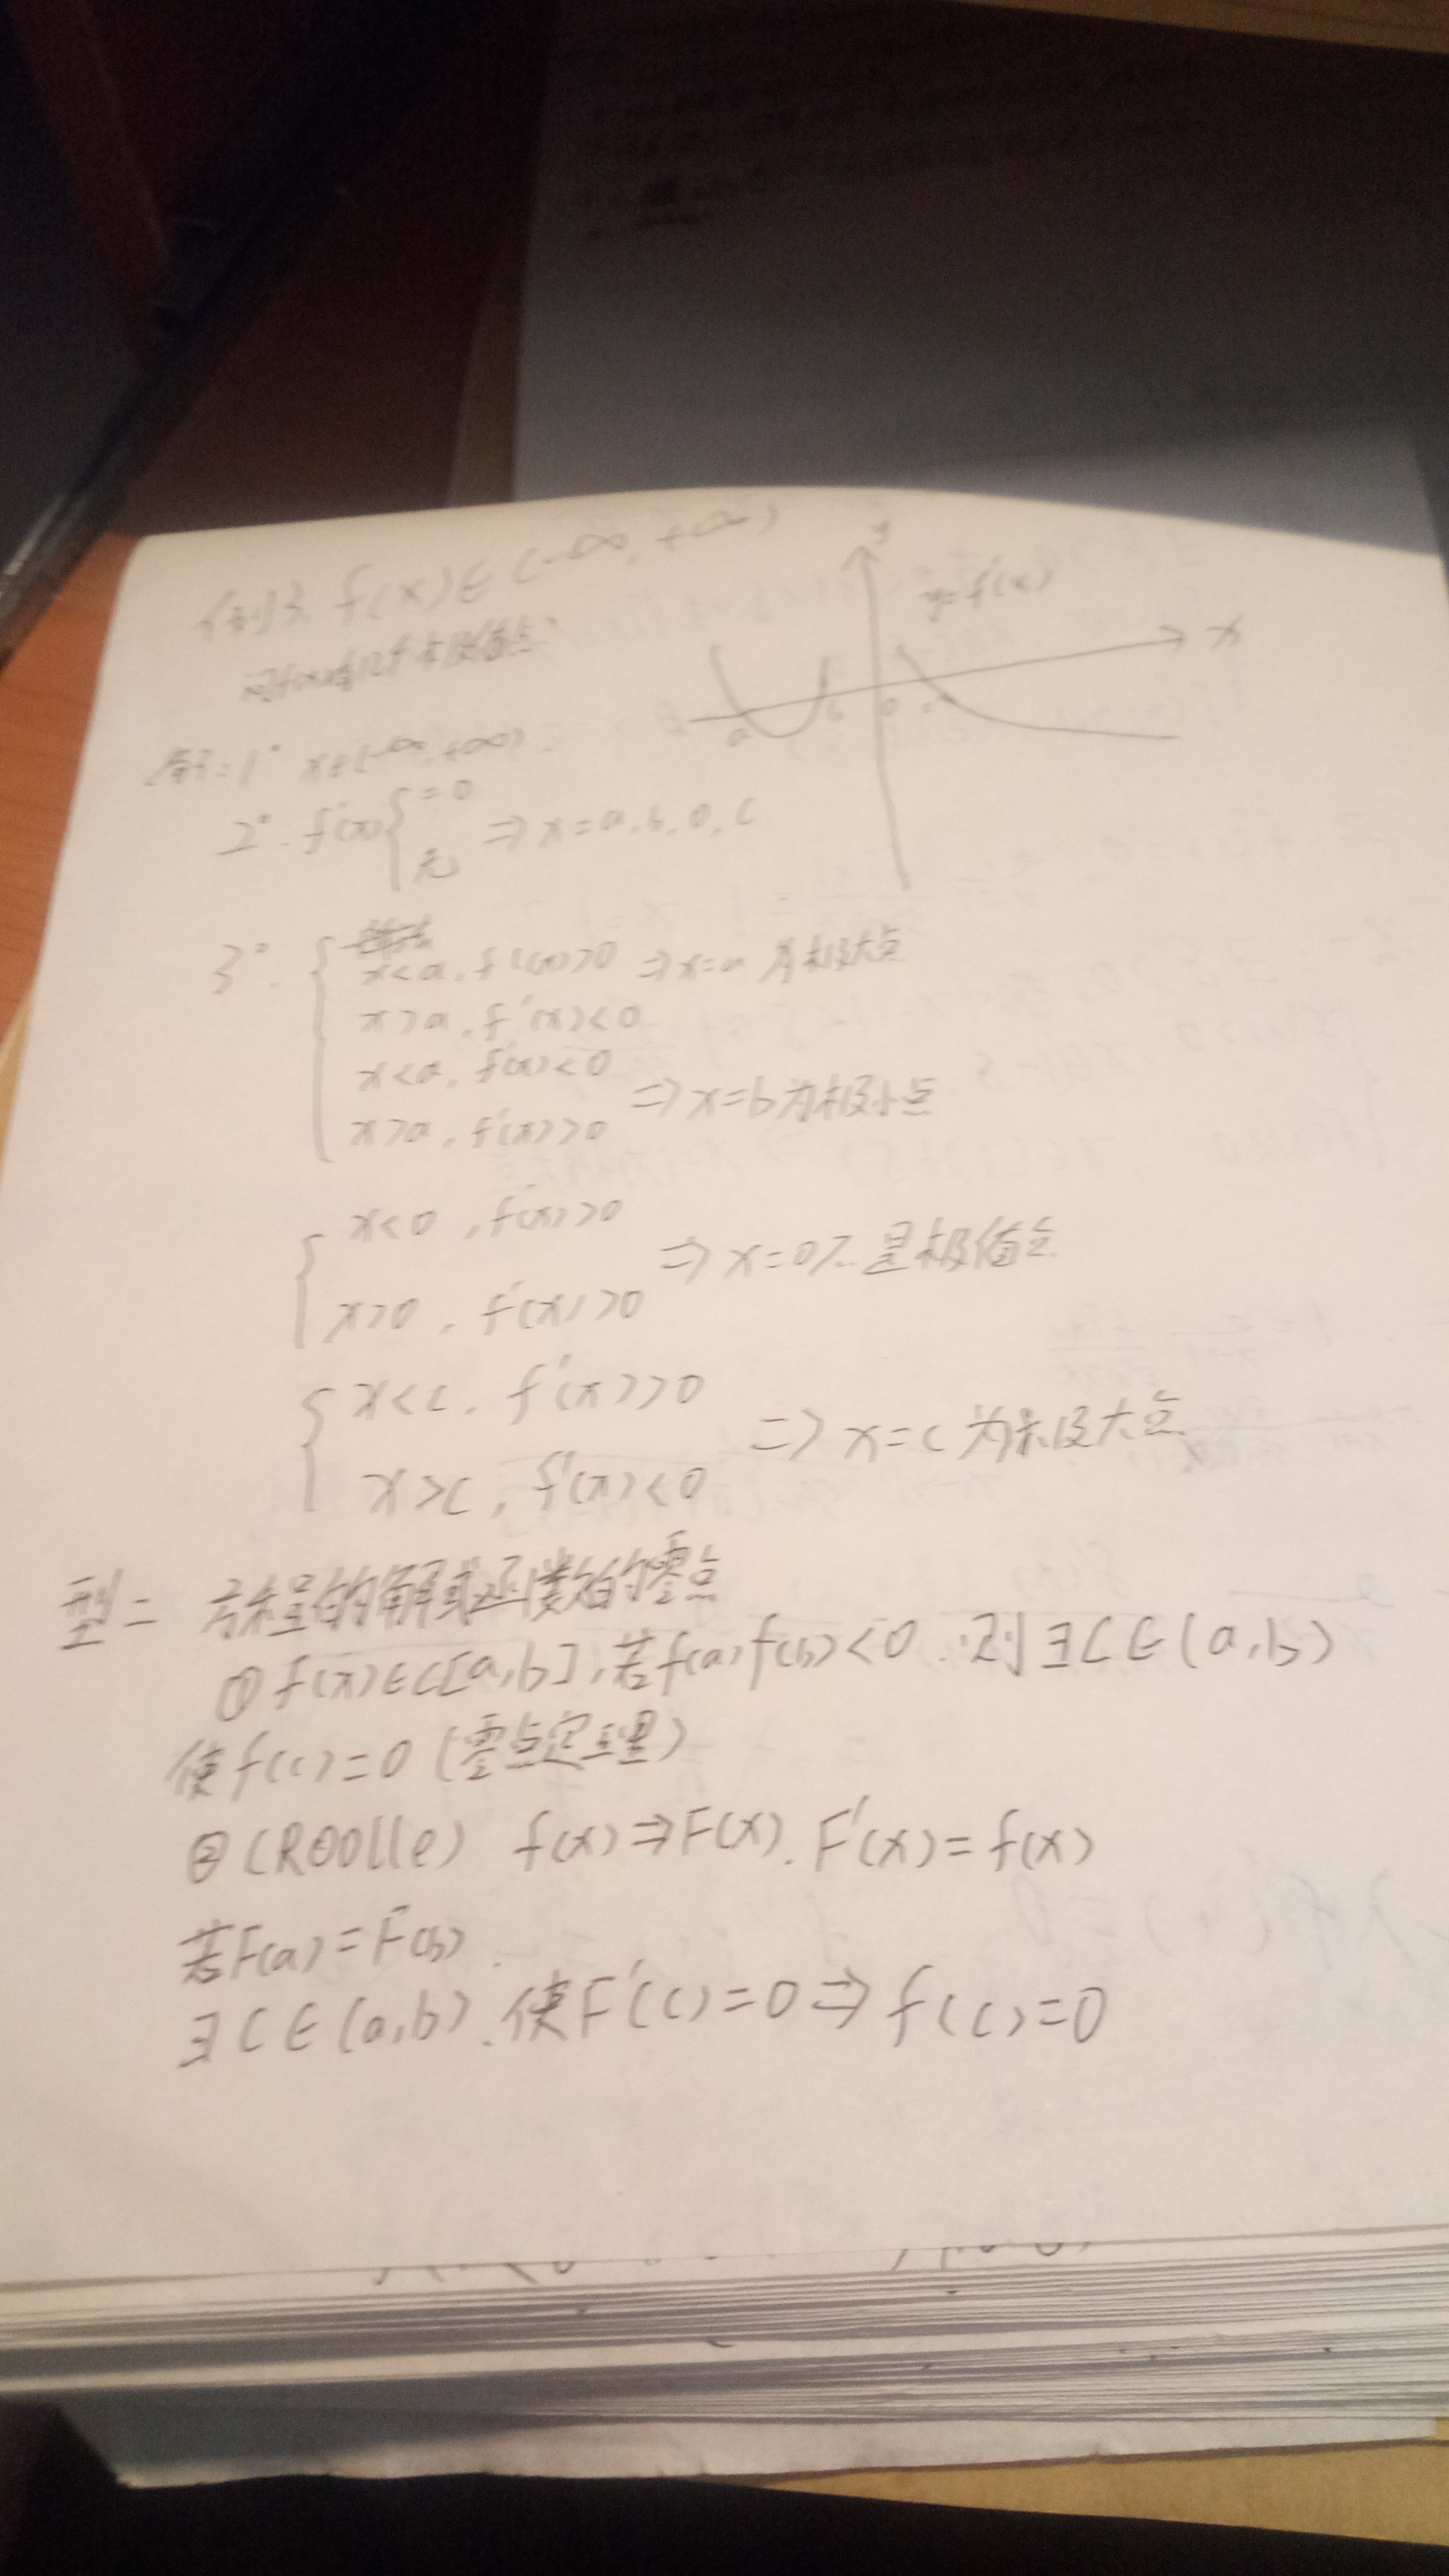 例3. f(x)∈(-∞,+∞)
问f(x)有几个极值点
y
y=f'(x)
x
a
b
0
c
解:1° x∈(-∞,+∞)
2°. f'(x){=0 无 ⇒ x=a,b,0,c
3°.
x<a, f'(x)>0 ⇒ x=a 为极大点
x>a, f'(x)<0
x<a, f'(x)<0
x>a, f'(x)>0 ⇒ x=b为极小点
x<0, f'(x)>0
⇒ x=0不是极值点
x>0, f'(x)>0
x<c, f'(x)>0
⇒ x=c为极大点
x>c, f'(x)<0
型二 方程的解或函数的零点
① f(x)∈C[a,b],若f(a)f(b)<0.则∃C∈(a,b)
使f(c)=0(零点定理)
②(ROOlle) f(x)⇒F(x).F'(x)=f(x)
若F(a)=F(b).
∃C∈(a,b).使F'(c)=0⇒f(c)=0